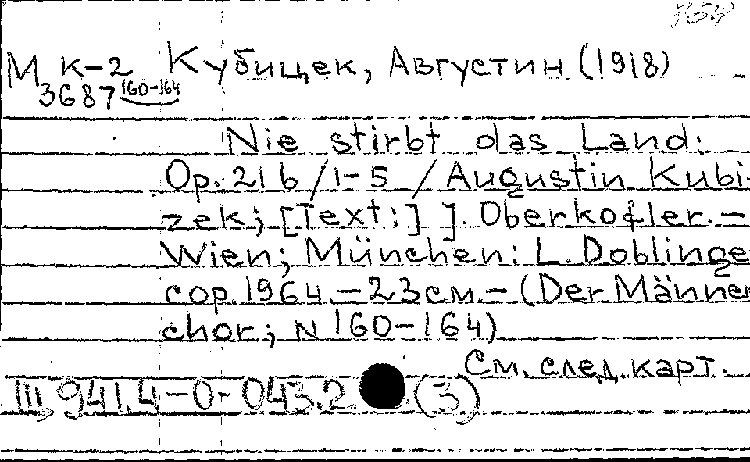 М к-2 Кубицек, Августин (1918)
3687 160-164
Nie stirbt das Land:
Op. 21 b /1-5 / Augustin Kubi-
zek; [Text:] J. Oberkofler. —
Wien; München: L. Doblinge
cop. 1964 — 23 см. — (Der Männer
chor; N 160-164)
См. след. карт.
III, 941.4-0-043.2 (3)